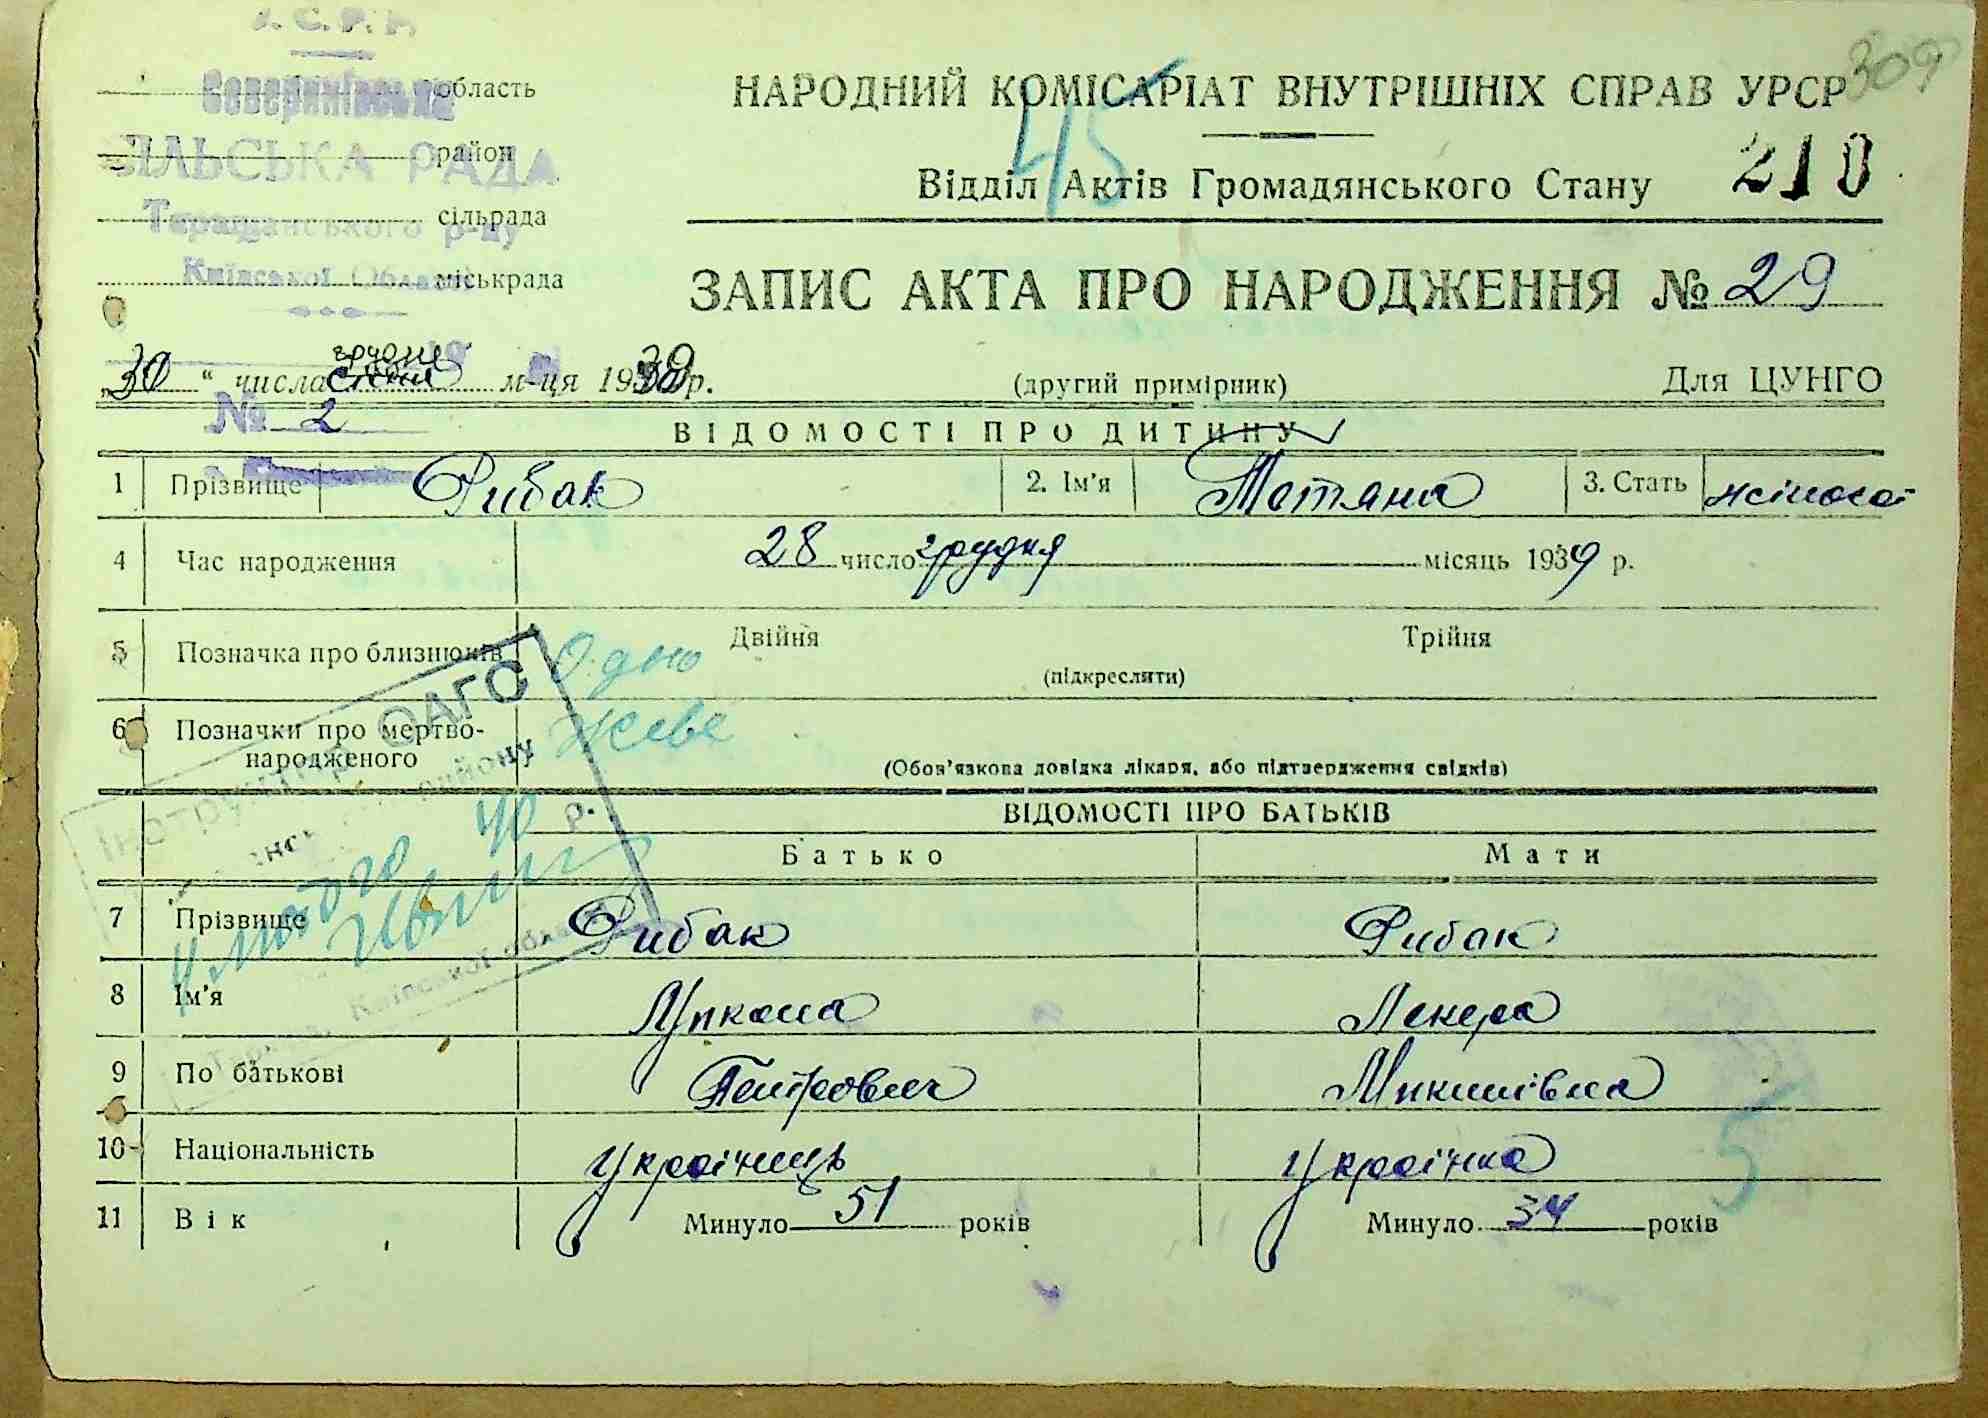 У.С.Р.Р.
Северинівська
область
СІЛЬСЬКА РАДА
район
Таращанського р-ну
сільрада
Київської Області
міськрада
309
НАРОДНИЙ КОМІСАРІАТ ВНУТРІШНІХ СПРАВ УРСР
45
Відділ Актів Громадянського Стану 210
ЗАПИС АКТА ПРО НАРОДЖЕННЯ № 29
„30“ числа грудня м-ця 1939 р. (другий примірник) Для ЦУНГО
№ 2
ВІДОМОСТІ ПРО ДИТИНУ
1 Прізвище Рибак 2. Ім'я Тетяна 3. Стать жіноча
4 Час народження 28 число грудня місяць 1939 р.
5 Позначка про близнюків Одно Двійня Трійня
(підкреслити)
6 Позначки про мертво-народженого Живе
(Обов'язкова довідка лікаря, або підтвердження свідків)
Інструктор ОАГС
району
4 лютого 40 р.
Київської області
ВІДОМОСТІ ПРО БАТЬКІВ
Батько Мати
7 Прізвище Рибак Рибак
8 Ім'я Микола
9 По батькові Петрович
10 Національність Українець Українка
5
11 Вік Минуло 51 років Минуло 34 років